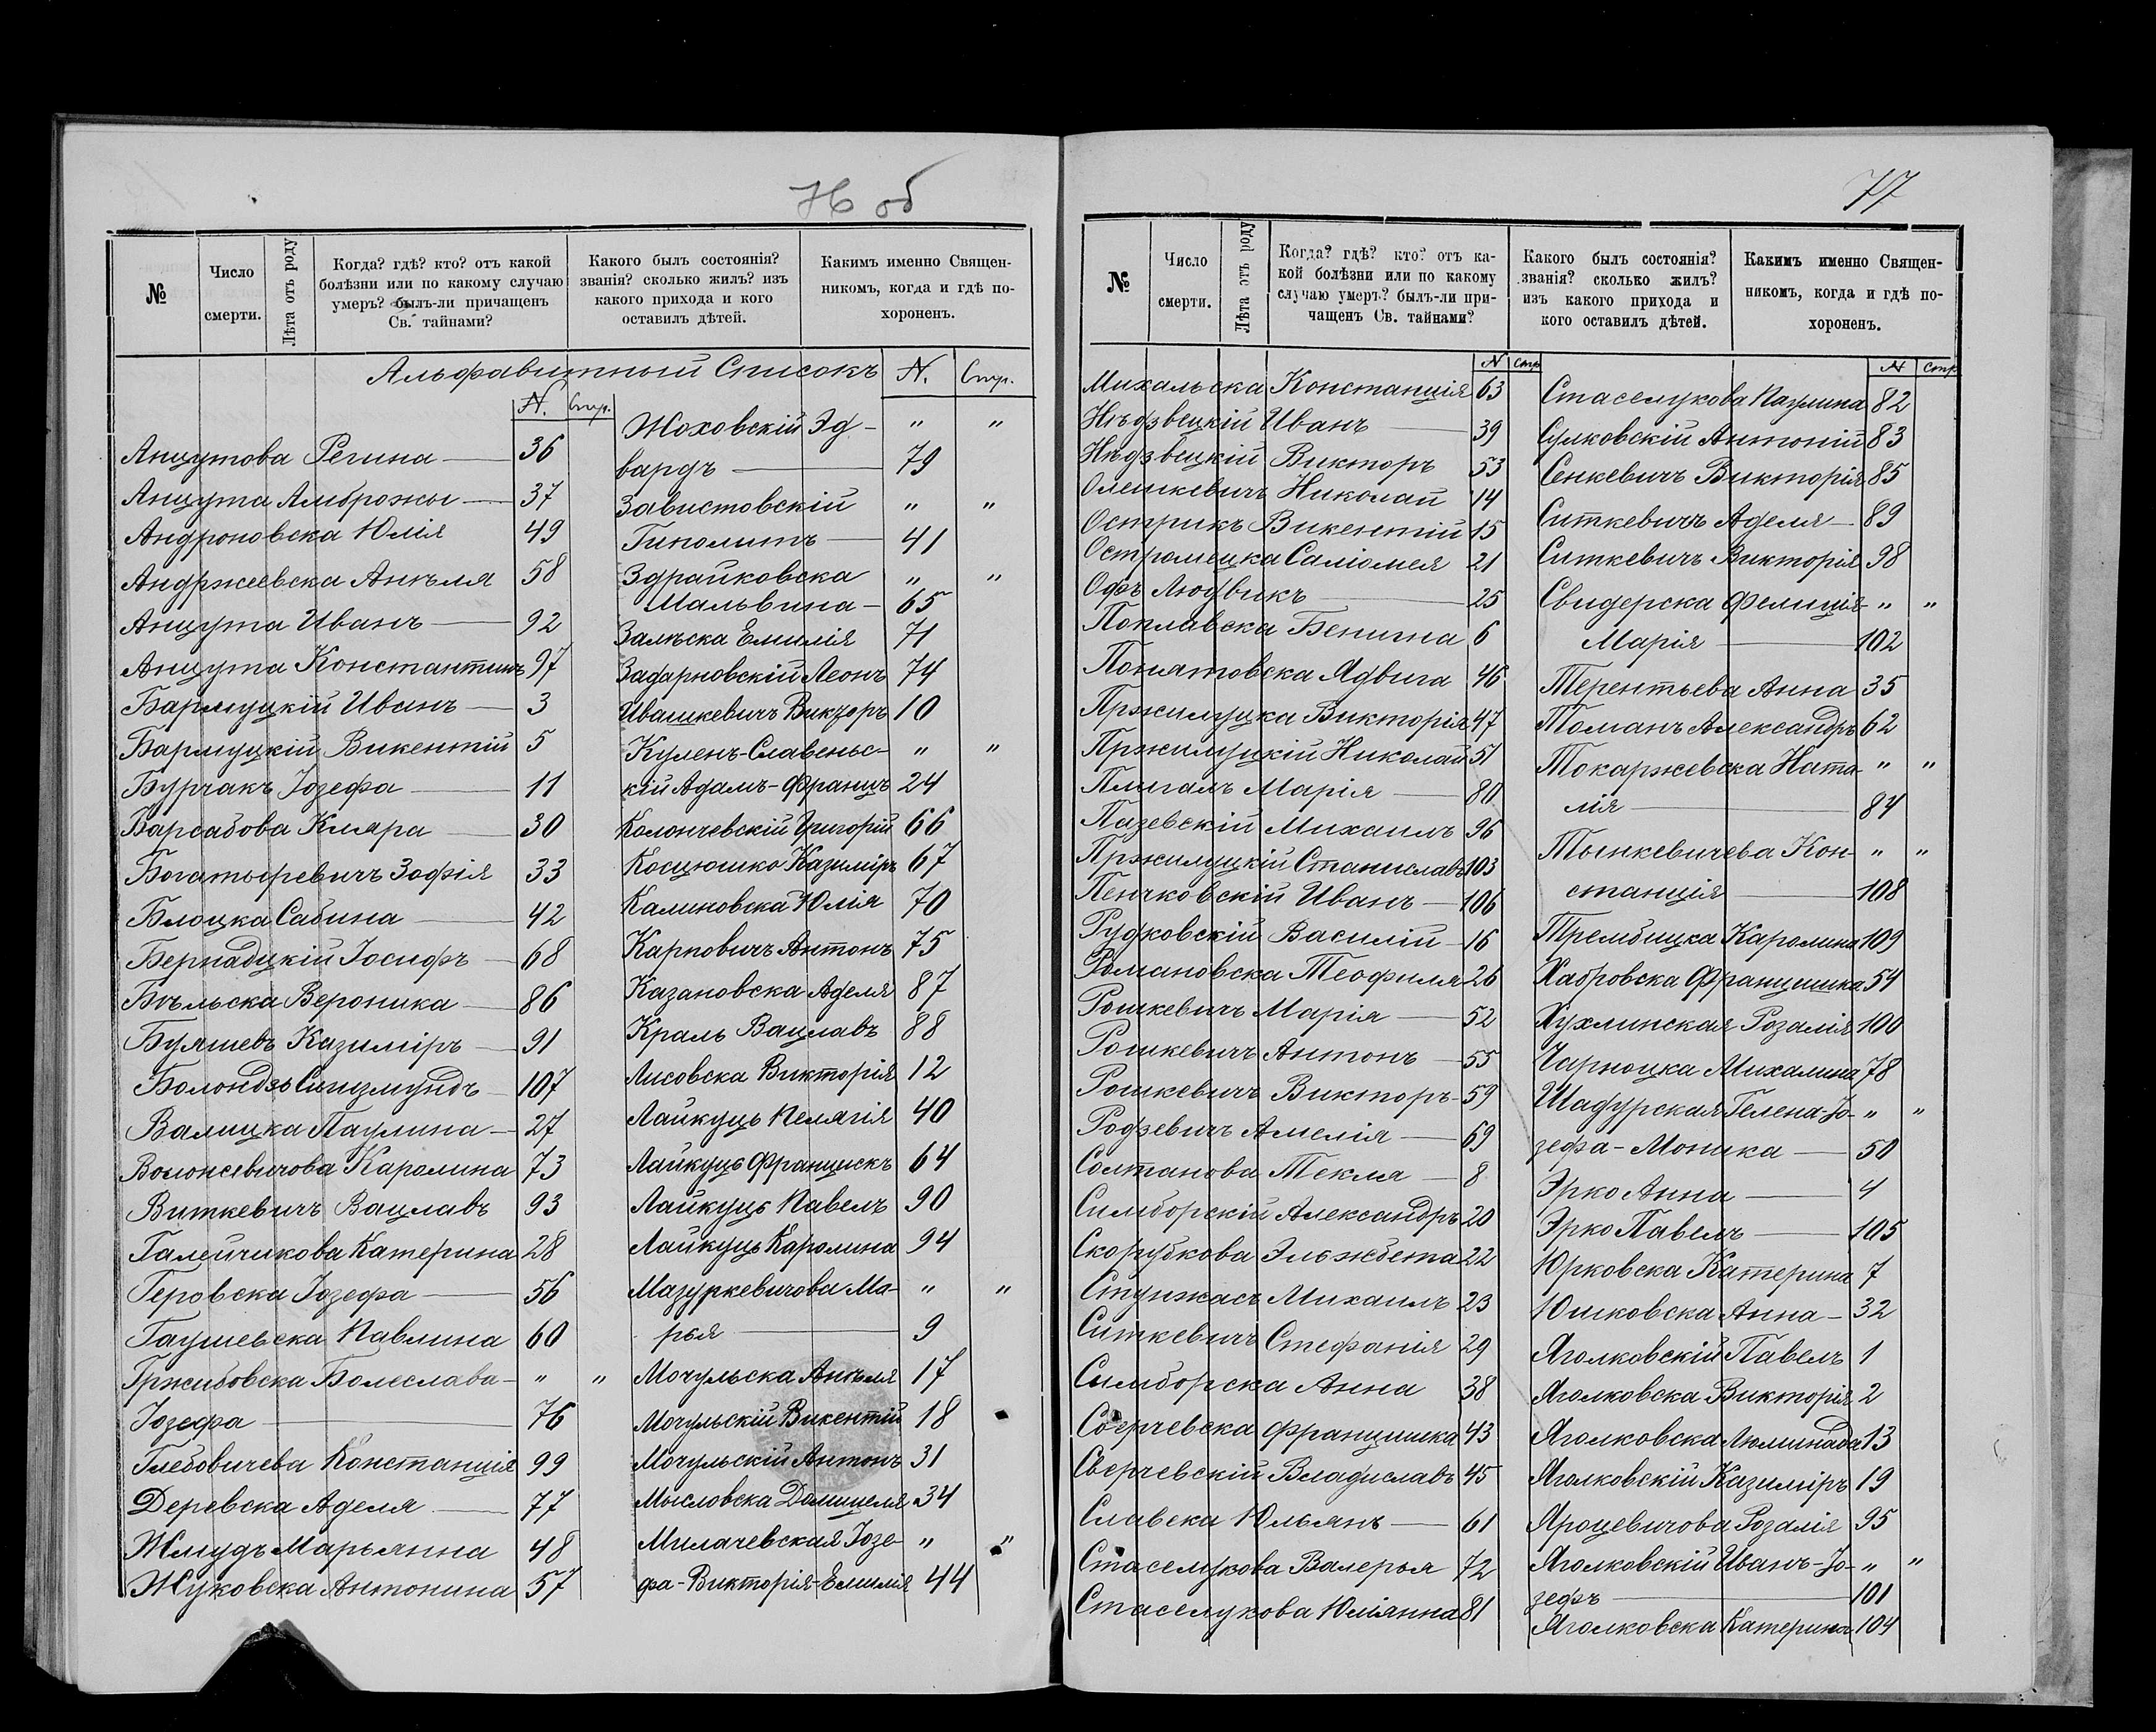 76 об
№
Число смерти.
Лѣта отъ роду
Когда? гдѣ? кто? отъ какой
болѣзни или по какому случаю
умеръ? былъ-ли причащенъ
Св. тайнами?
Какого былъ состоянія?
званія? сколько жилъ? изъ
какого прихода и кого
оставилъ дѣтей.
Какимъ именно Священ-
никомъ, когда и гдѣ по-
хороненъ.
Альфавитный Списокъ
N. Стр.
Анцутова Регина — 36
Анцута Амброжы — 37
Андроновска Юлія 49
Андржеевска Анѣля 58
Анцута Иванъ — 92
Анцута Константинъ 97
Бармуцкій Иванъ — 3
Бармуцкій Викентій 5
Бурчакъ Іозефа — 11
Барсабова Кляра — 30
Богатыревичъ Зофія 33
Блоцка Сабина — 42
Бернадцкій Іосифъ — 68
Бѣльска Вероника — 86
Буяшевъ Казиміръ — 91
Болондзь Сигизмундъ — 107
Валицка Паулина — 27
Волонсевичова Каролина 73
Виткевичъ Вацлавъ 93
Галейчикова Катерина 28
Геровска Іозефа — 56
Гаушевска Павлина 60
Гржибовска Болеслава- " "
Іозефа — 76
Глебовичева Констанція 99
Деревска Аделя — 77
Жмудь Марьянна 48
Жуковска Антонина 57
N. Стр.
Жоховскій Эд- " "
вардъ — 79
Завистовскій " "
Гиполитъ — 41
Здрайковска " "
Мальвина — 65
Залѣска Емилія 71
Задарновскій Леонъ 74
Ивашкевичъ Викторъ 10
Куленъ-Славеньс- " "
кій Адамъ-Францъ 24
Колончевскій Григорій 66
Косцюшко Казиміръ 67
Калиновска Юлія 70
Карповичъ Антонъ 75
Казановска Аделя 87
Краль Вацлавъ 88
Лисовска Викторія 12
Лайкуць Пелягія 40
Лайкуць Францискъ 64
Лайкуць Павелъ 90
Лайкуць Каролина 94
Мазуркевичова Ма- " "
рья — 9
Мочульска Анѣля 17
Мочульскій Викентій 18
Мочульскій Антонъ 31
Мысловска Домицеля 34
Милачевская Іозе- " "
фа-Викторія-Емилія 44
77
№
Число смерти.
Лѣта отъ роду
Когда? гдѣ? кто? отъ ка-
кой болѣзни или по какому
случаю умеръ? былъ-ли при-
чащенъ Св. тайнами?
Какого былъ состоянія?
званія? сколько жилъ?
изъ какого прихода и
кого оставилъ дѣтей.
Какимъ именно Священ-
никомъ, когда и гдѣ по-
хороненъ.
N Стр
Михальска Констанція 63
Нѣдзвецкій Иванъ — 39
Нѣдзвецкій Викторъ 53
Олешкевичъ Николай 14
Острикъ Викентій 15
Остромецка Саліомея 21
Офъ Людвикъ — 25
Поплавска Бенигна 6
Понятовска Ядвига 46
Пржилуцка Викторія 47
Пржилуцкій Николай 51
Плигалъ Марія — 80
Пазевскій Михаилъ 96
Пржилуцкій Станиславъ 103
Пенчковскій Иванъ — 106
Рудковскій Василій — 16
Романовска Теофиля 26
Рошкевичъ Марія — 52
Рошкевичъ Антонъ — 55
Рошкевичъ Викторъ — 59
Родзевичъ Амелія — 69
Солтанова Текля — 8
Симборскій Александръ 20
Скорубкова Эльжбета 22
Стунжасъ Михаилъ 23
Ситкевичъ Стефанія 29
Сымборска Анна 38
Сверчевска Францишка 43
Сверчевскій Владиславъ 45
Славска Юльянъ — 61
Стаселукова Валерья 72
Стаселукова Юліянна 81
N Стр
Стаселукова Паулина 82
Сулковскій Антоній 83
Сенкевичъ Викторія 85
Ситкевичъ Аделя — 89
Ситкевичъ Викторія 98
Свидерска Фелиція- " "
Марія — 102
Терентьева Анна 35
Томанъ Александръ 62
Токаржевска Ната- " "
лія — 84
Тынкевичева Кон- " "
станція — 108
Трембицка Каролина 109
Хабровска Францишка 54
Хухлинская Розалія 100
Чарноцка Михалина 78
Шадурская Гелена-Іо- " "
зефа-Моника — 50
Эрко Анна — 4
Эрко Павелъ — 105
Юрковска Катерина 7
Юшковска Анна — 32
Яголковскій Павелъ 1
Яголковска Викторія 2
Яголковска Люминада 13
Яголковскій Казиміръ 19
Яроцевичова Розалія 95
Яголковскій Иванъ-Іо- " "
зефъ — 101
Яголковска Катерина 104